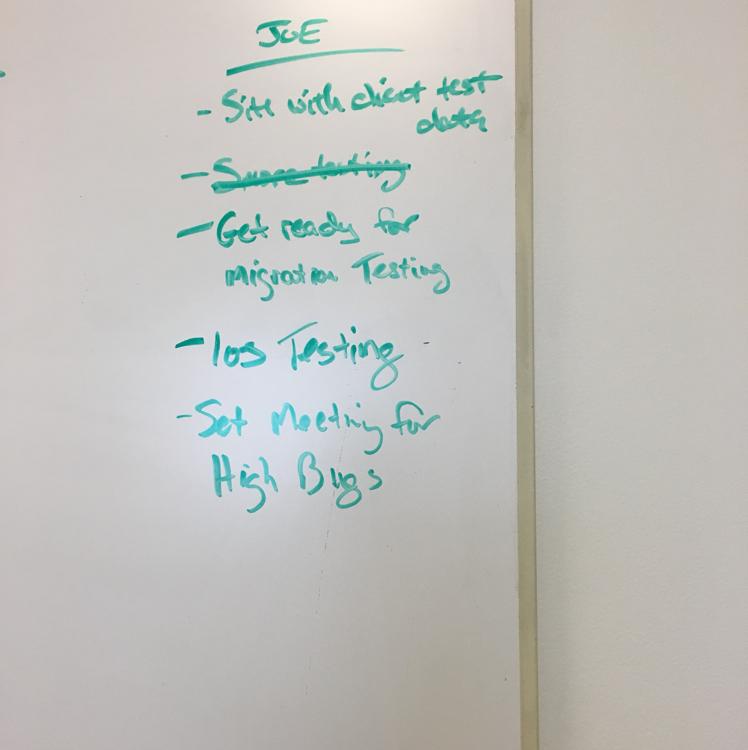 JOE
- Site with client test
data
- testing
- Get ready for
Migration Testing
- Ios Testing
- Set Meeting for
High Bugs